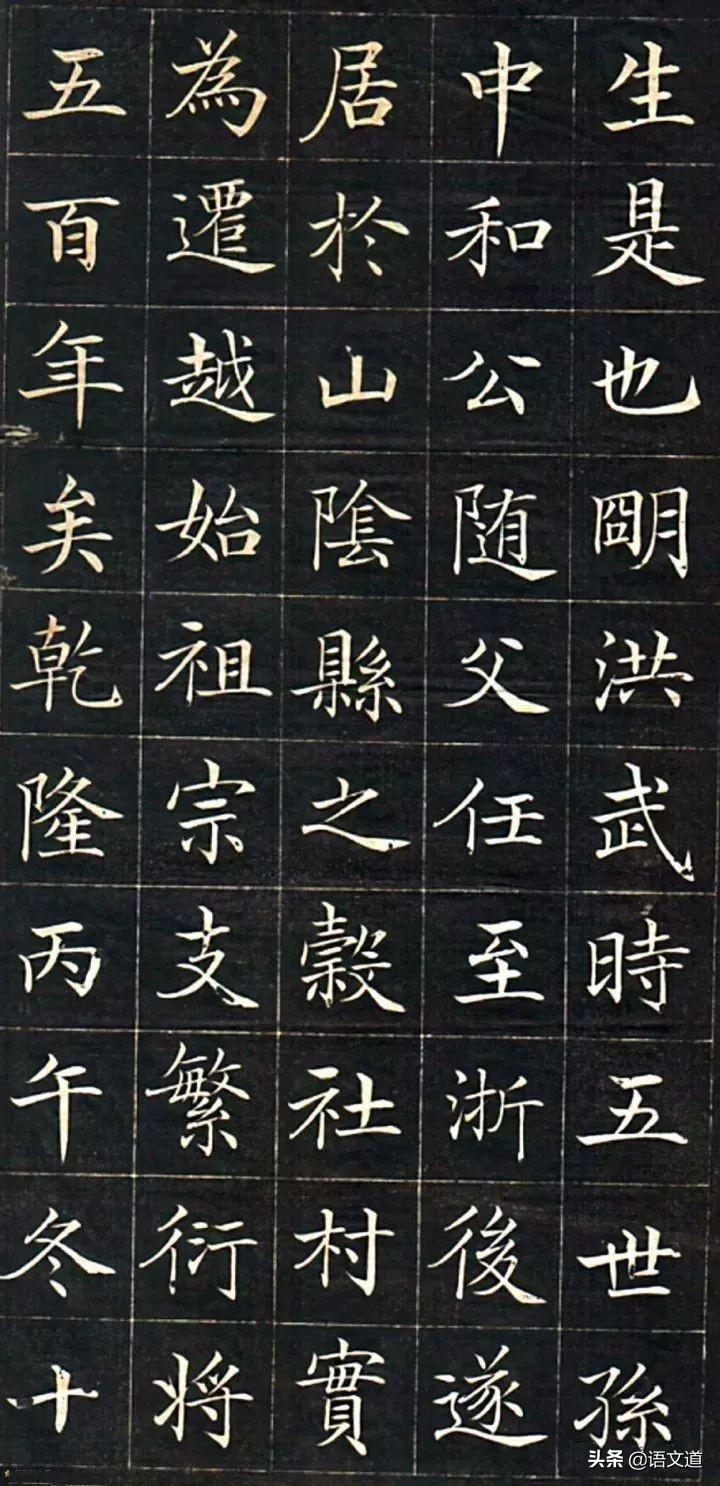 生是也朙洪武時五世孫
中和公随父任至浙後遂
居於山陰縣之榖社村實
為遷越始祖宗支繁衍将
五百年矣乾隆丙午冬十
头条 @语文道